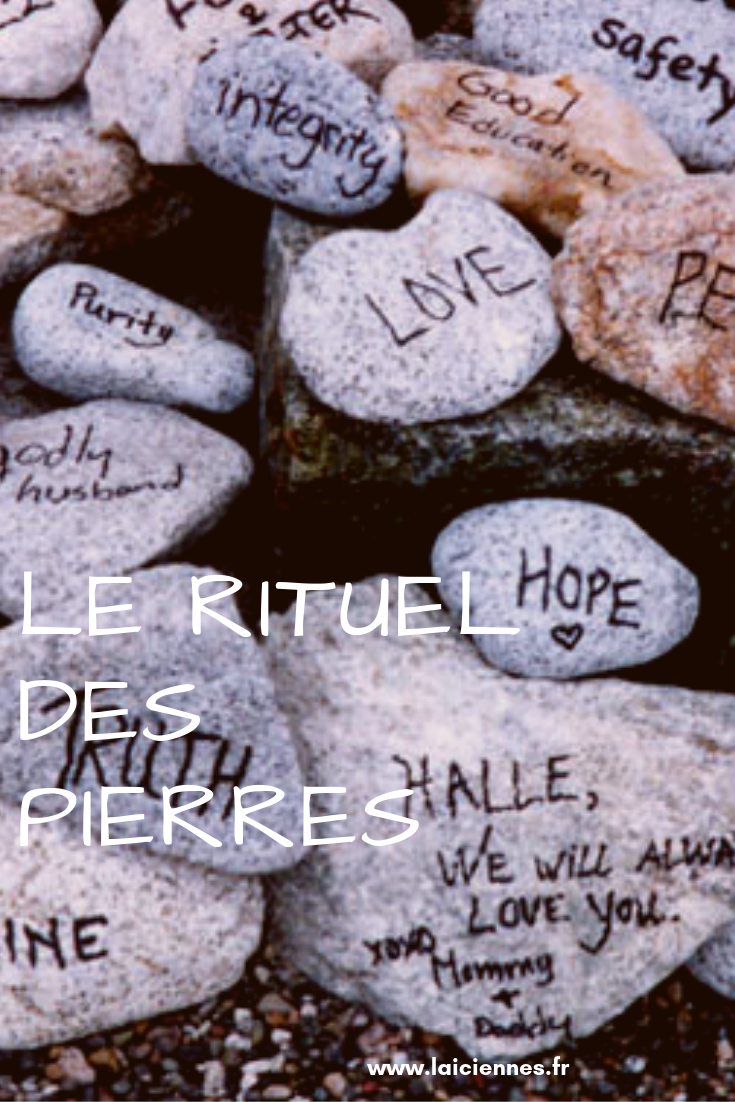 safety
integrity
Good
Education
LOVE
PE
Purity
godly
husband
HOPE
LE RITUEL
DES
TRUTH
PIERRES
HALLE,
WE WILL ALWA
LOVE YOU.
INE
xoxo
Mommy
+
Daddy
www.laiciennes.fr